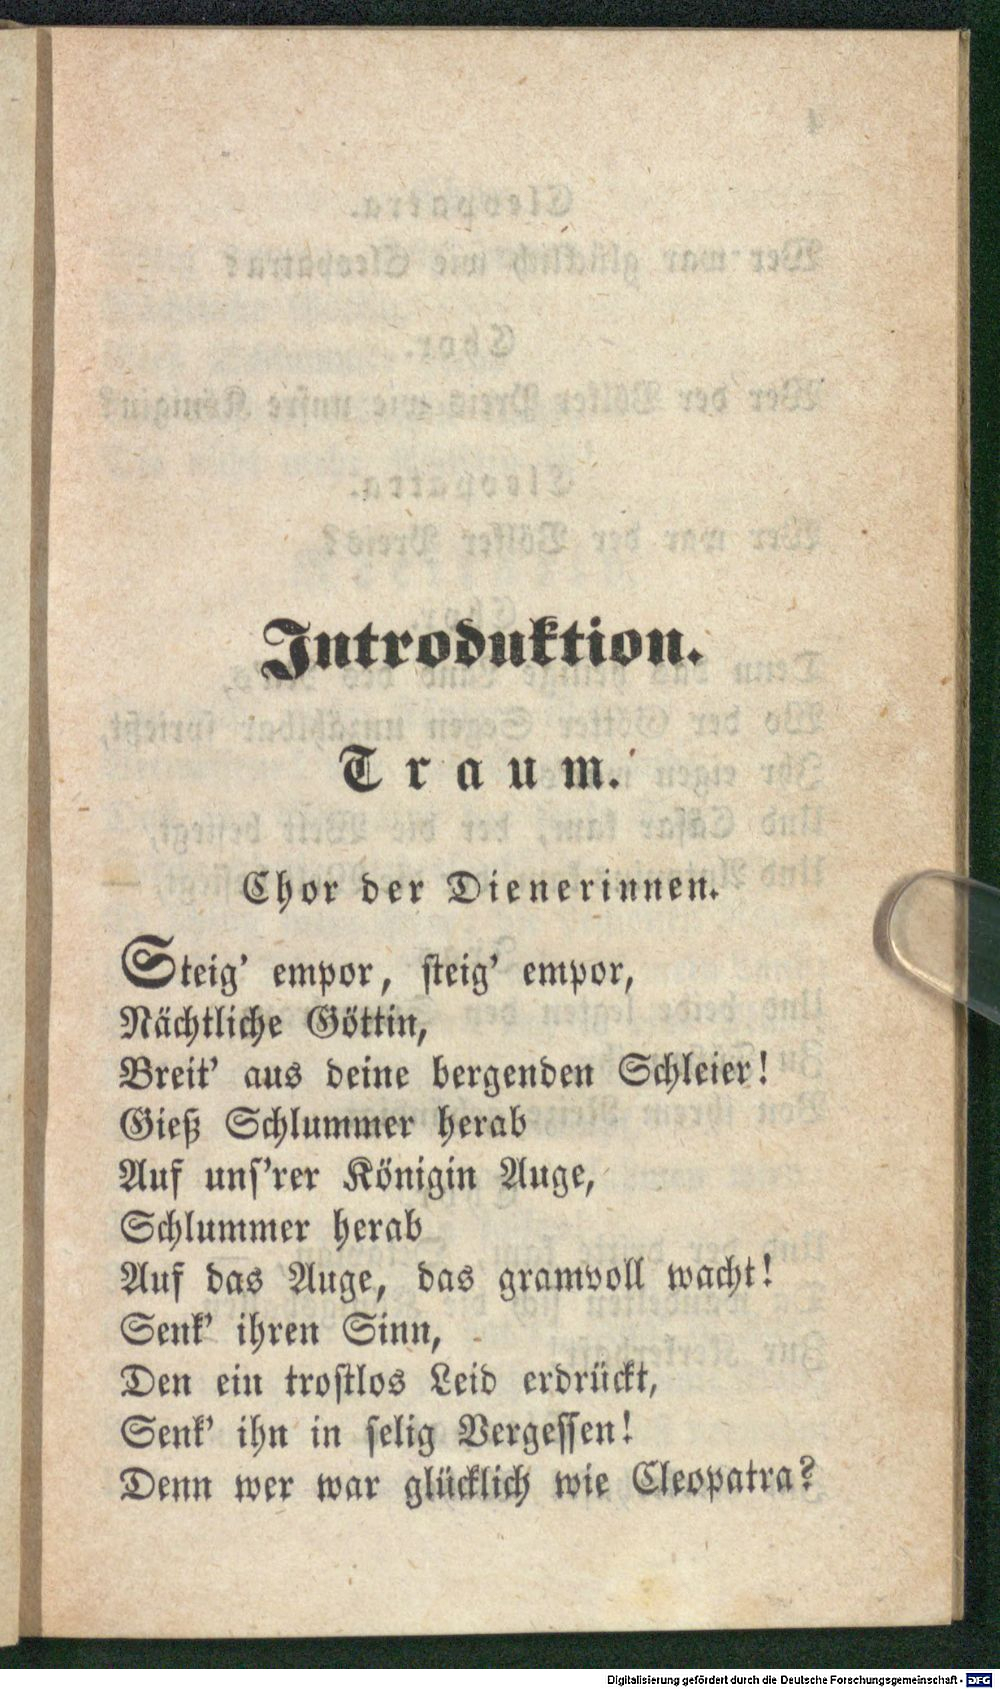 Introduktion.
Traum.
Chor der Dienerinnen.
Steig' empor, steig' empor,
Nächtliche Göttin,
Breit' aus deine bergenden Schleier!
Gieß Schlummer herab
Auf uns'rer Königin Auge,
Schlummer herab
Auf das Auge, das gramvoll wacht!
Senk' ihren Sinn,
Den ein trostlos Leid erdrückt,
Senk' ihn in selig Vergessen!
Denn wer war glücklich wie Cleopatra?
Digitalisierung gefördert durch die Deutsche Forschungsgemeinschaft - DFG